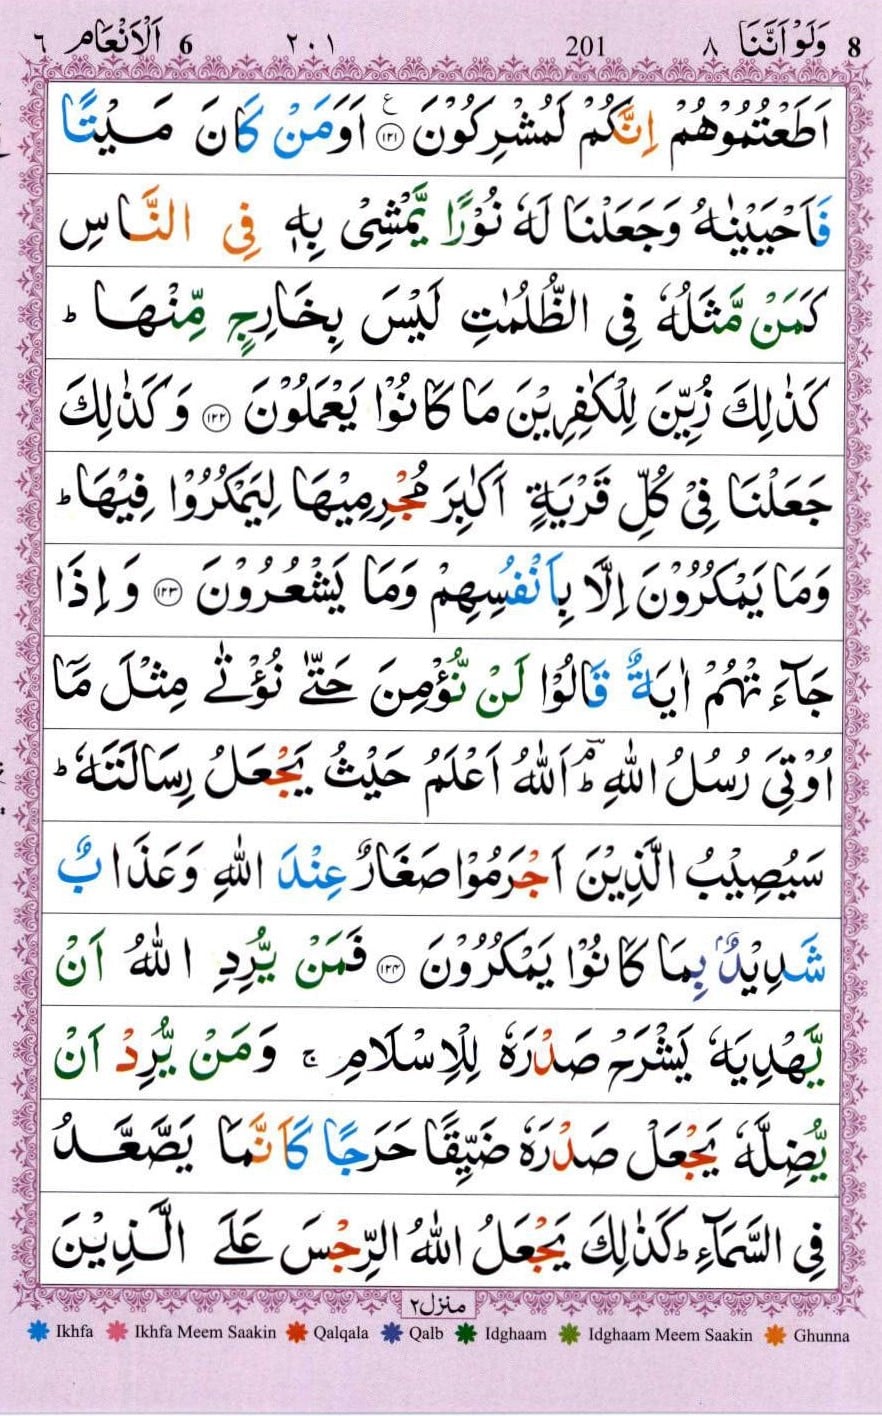 ٦ اَلْاَنْعَام 6 ٢٠١ 201 ٨ وَلَوْ اَنَّنَا 8
اَطَعْتُمُوْهُمْ اِنَّكُمْ لَمُشْرِكُوْنَ ﴿١٢١﴾ ع اَوَمَنْ كَانَ مَيْتًا
فَاَحْيَيْنٰهُ وَجَعَلْنَا لَهٗ نُوْرًا يَّمْشِيْ بِهٖ فِي النَّاسِ
كَمَنْ مَّثَلُهٗ فِي الظُّلُمٰتِ لَيْسَ بِخَارِجٍ مِّنْهَا ؕ
كَذٰلِكَ زُيِّنَ لِلْكٰفِرِيْنَ مَا كَانُوْا يَعْمَلُوْنَ ﴿١٢٢﴾ وَكَذٰلِكَ
جَعَلْنَا فِيْ كُلِّ قَرْيَةٍ اَكٰبِرَ مُجْرِمِيْهَا لِيَمْكُرُوْا فِيْهَا ؕ
وَمَا يَمْكُرُوْنَ اِلَّا بِاَنْفُسِهِمْ وَمَا يَشْعُرُوْنَ ﴿١٢٣﴾ وَاِذَا
جَآءَتْهُمْ اٰيَةٌ قَالُوْا لَنْ نُّؤْمِنَ حَتّٰى نُؤْتٰى مِثْلَ مَآ
اُوْتِيَ رُسُلُ اللّٰهِ ؕۘ اَللّٰهُ اَعْلَمُ حَيْثُ يَجْعَلُ رِسَالَتَهٗ ؕ
سَيُصِيْبُ الَّذِيْنَ اَجْرَمُوْا صَغَارٌ عِنْدَ اللّٰهِ وَعَذَابٌ
شَدِيْدٌۢ بِمَا كَانُوْا يَمْكُرُوْنَ ﴿١٢٤﴾ فَمَنْ يُّرِدِ اللّٰهُ اَنْ
يَّهْدِيَهٗ يَشْرَحْ صَدْرَهٗ لِلْاِسْلَامِ ۚ وَمَنْ يُّرِدْ اَنْ
يُّضِلَّهٗ يَجْعَلْ صَدْرَهٗ ضَيِّقًا حَرَجًا كَاَنَّمَا يَصَّعَّدُ
فِي السَّمَآءِ ؕ كَذٰلِكَ يَجْعَلُ اللّٰهُ الرِّجْسَ عَلَى الَّذِيْنَ
منزل٢
Ikhfa Ikhfa Meem Saakin Qalqala Qalb Idghaam Idghaam Meem Saakin Ghunna